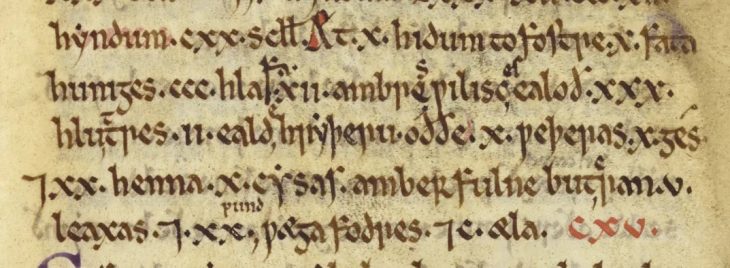 hyndum. cxx. scll. Æt. x. hidum to fostre. x. fata
huniges. ccc. hlafa. xii. ambres ƿilisces ealoð. xxx.
hlut̄res. ii. ealde hryþeru. oððe. x. ƿeþeras. x. ges.
⁊. xx. henna. x. cysas. amber fulne buteran. v.
leaxas. ⁊. xx. pund ƿæga fodres. ⁊ c. æla. cxv.